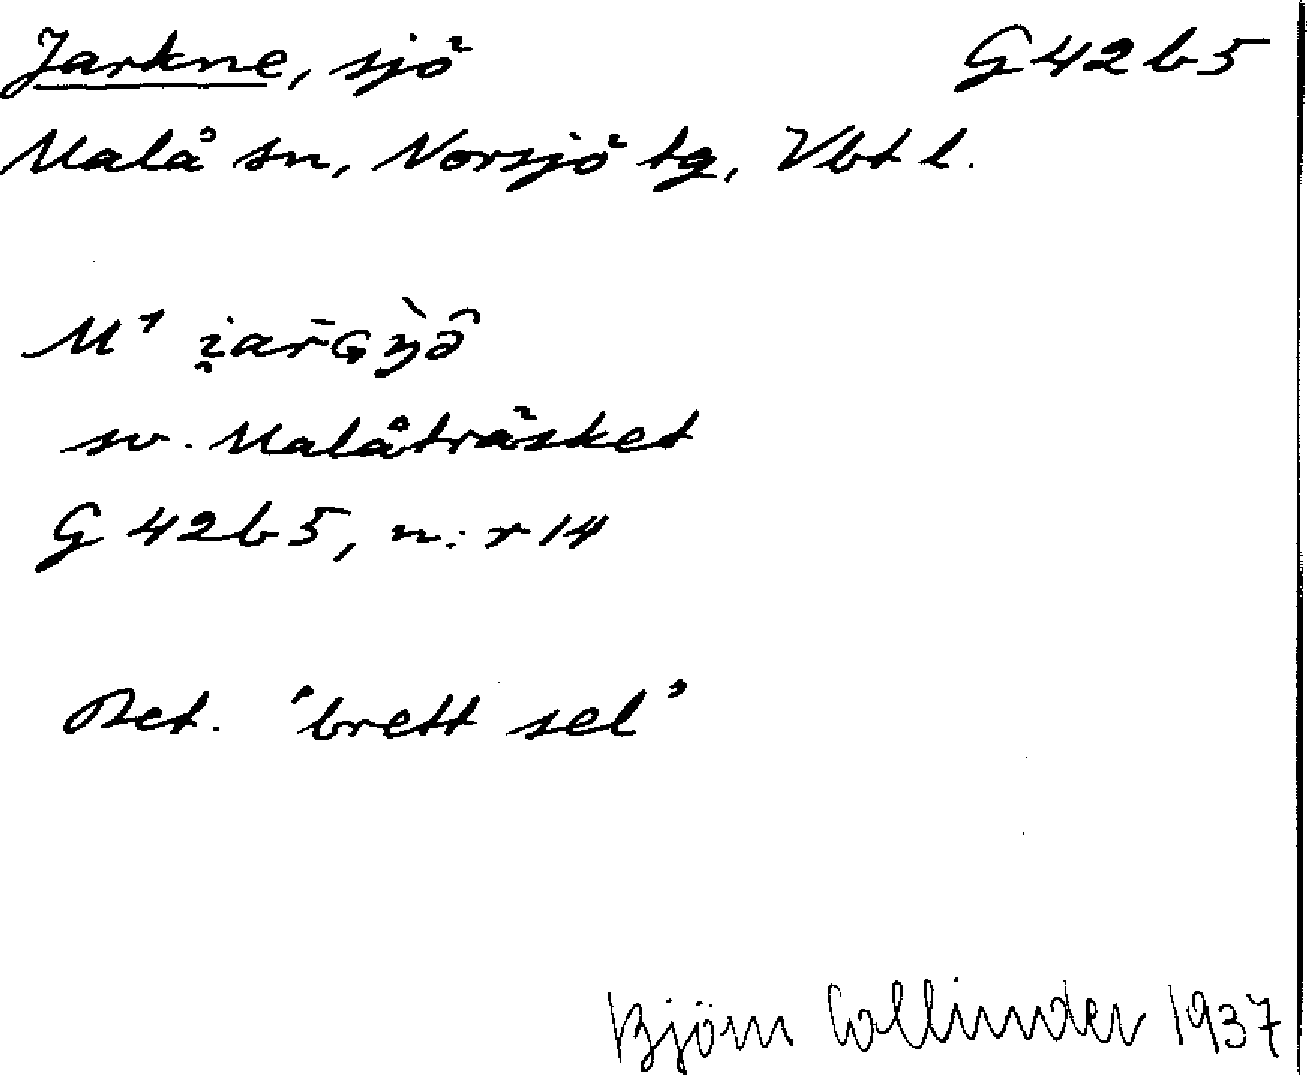 Jarkne, sjö G42b5
Malå sn, Norsjö tg, Vbt l.
M1 i̯ar̄Gŋ̀ə̑
sv. Malåträsket
G 42b5, n:r 14
Bet. 'brett sel'
Björn Collinder 1937